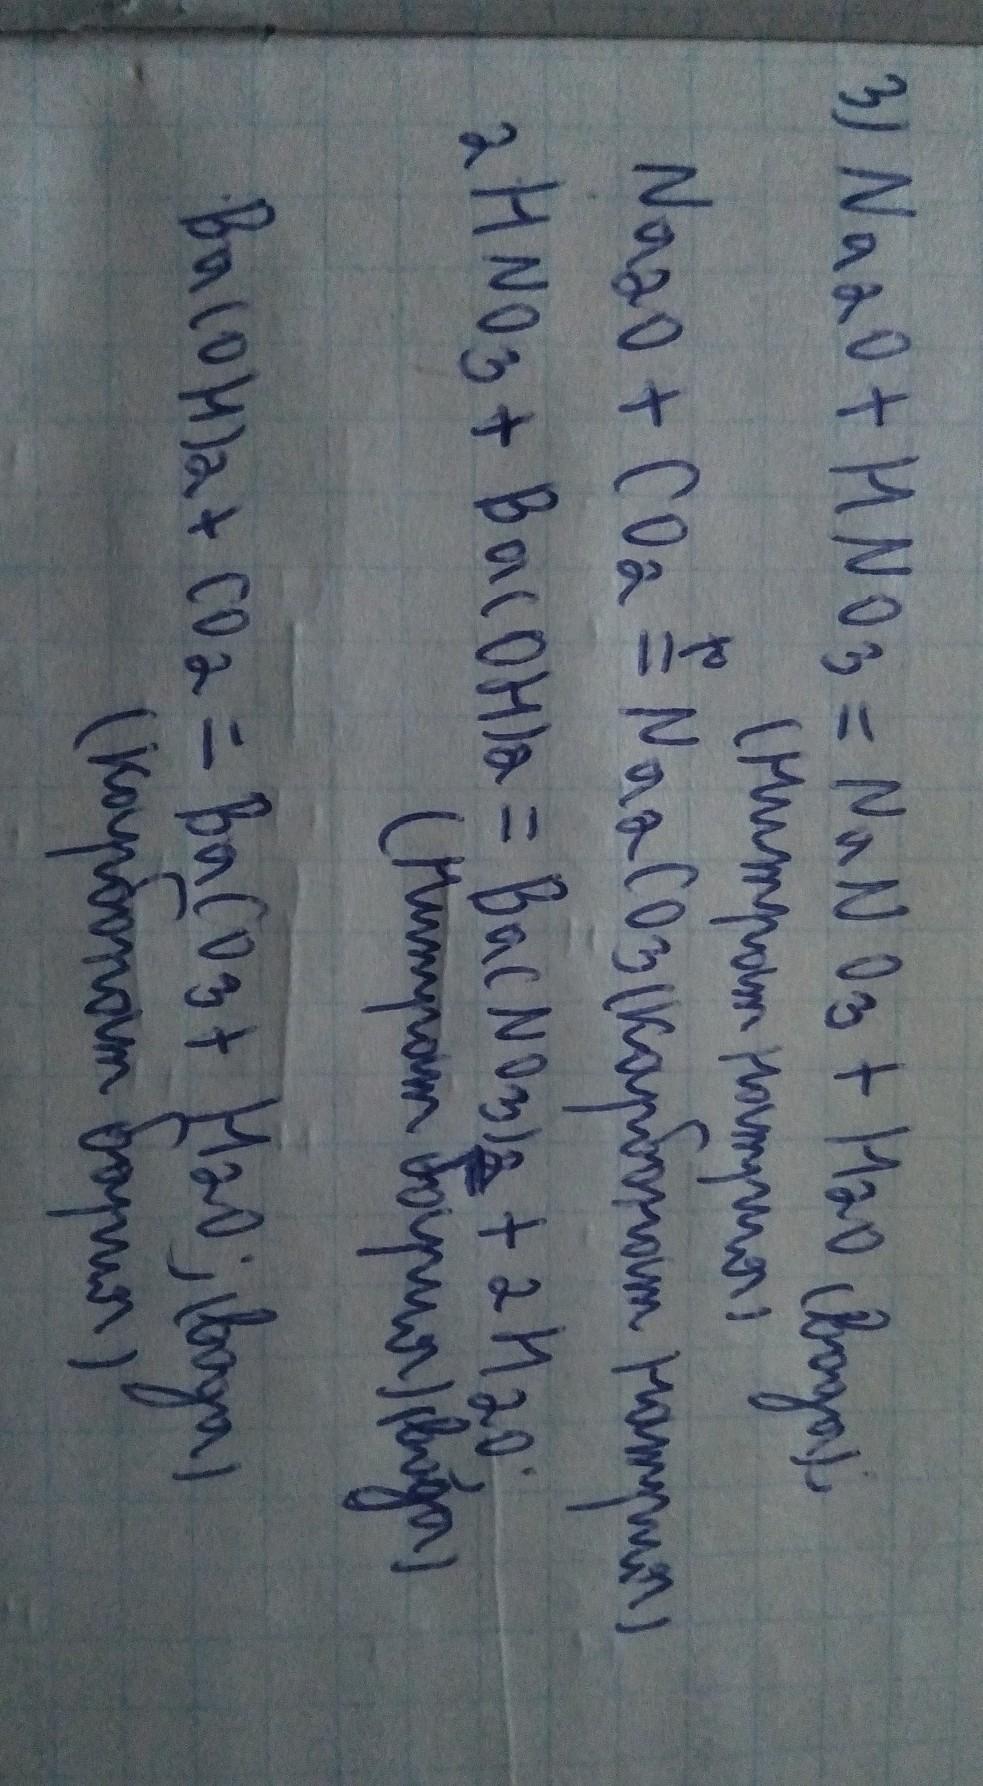 3) Na2O + HNO3 = NaNO3 + H2O (вода);
(Нитрат натрия)
Na2O + CO2 =t Na2CO3 (карбонат натрия)
2HNO3 + Ba(OH)2 = Ba(NO3)2 + 2H2O;
(Нитрат бария) (вода)
Ba(OH)2 + CO2 = BaCO3 + H2O; (вода)
(карбонат бария)